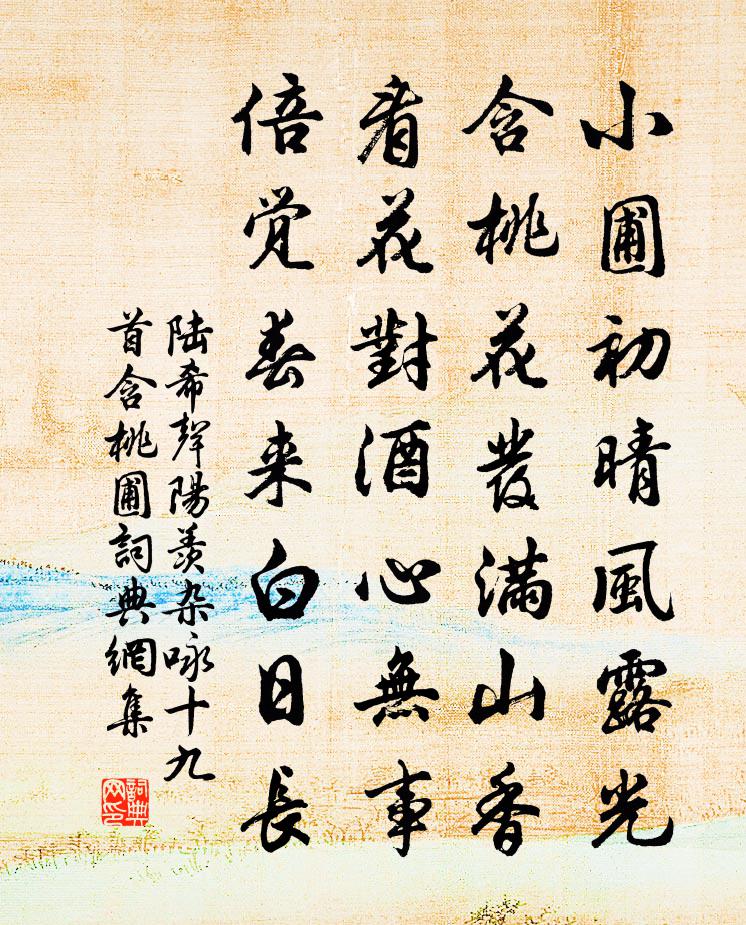 小圃初晴風露光
含桃花發滿山香
看花對酒心無事
倍覺春来白日長
陸希聲陽羨杂咏十九
首含桃圃詞典網集
詞典网印